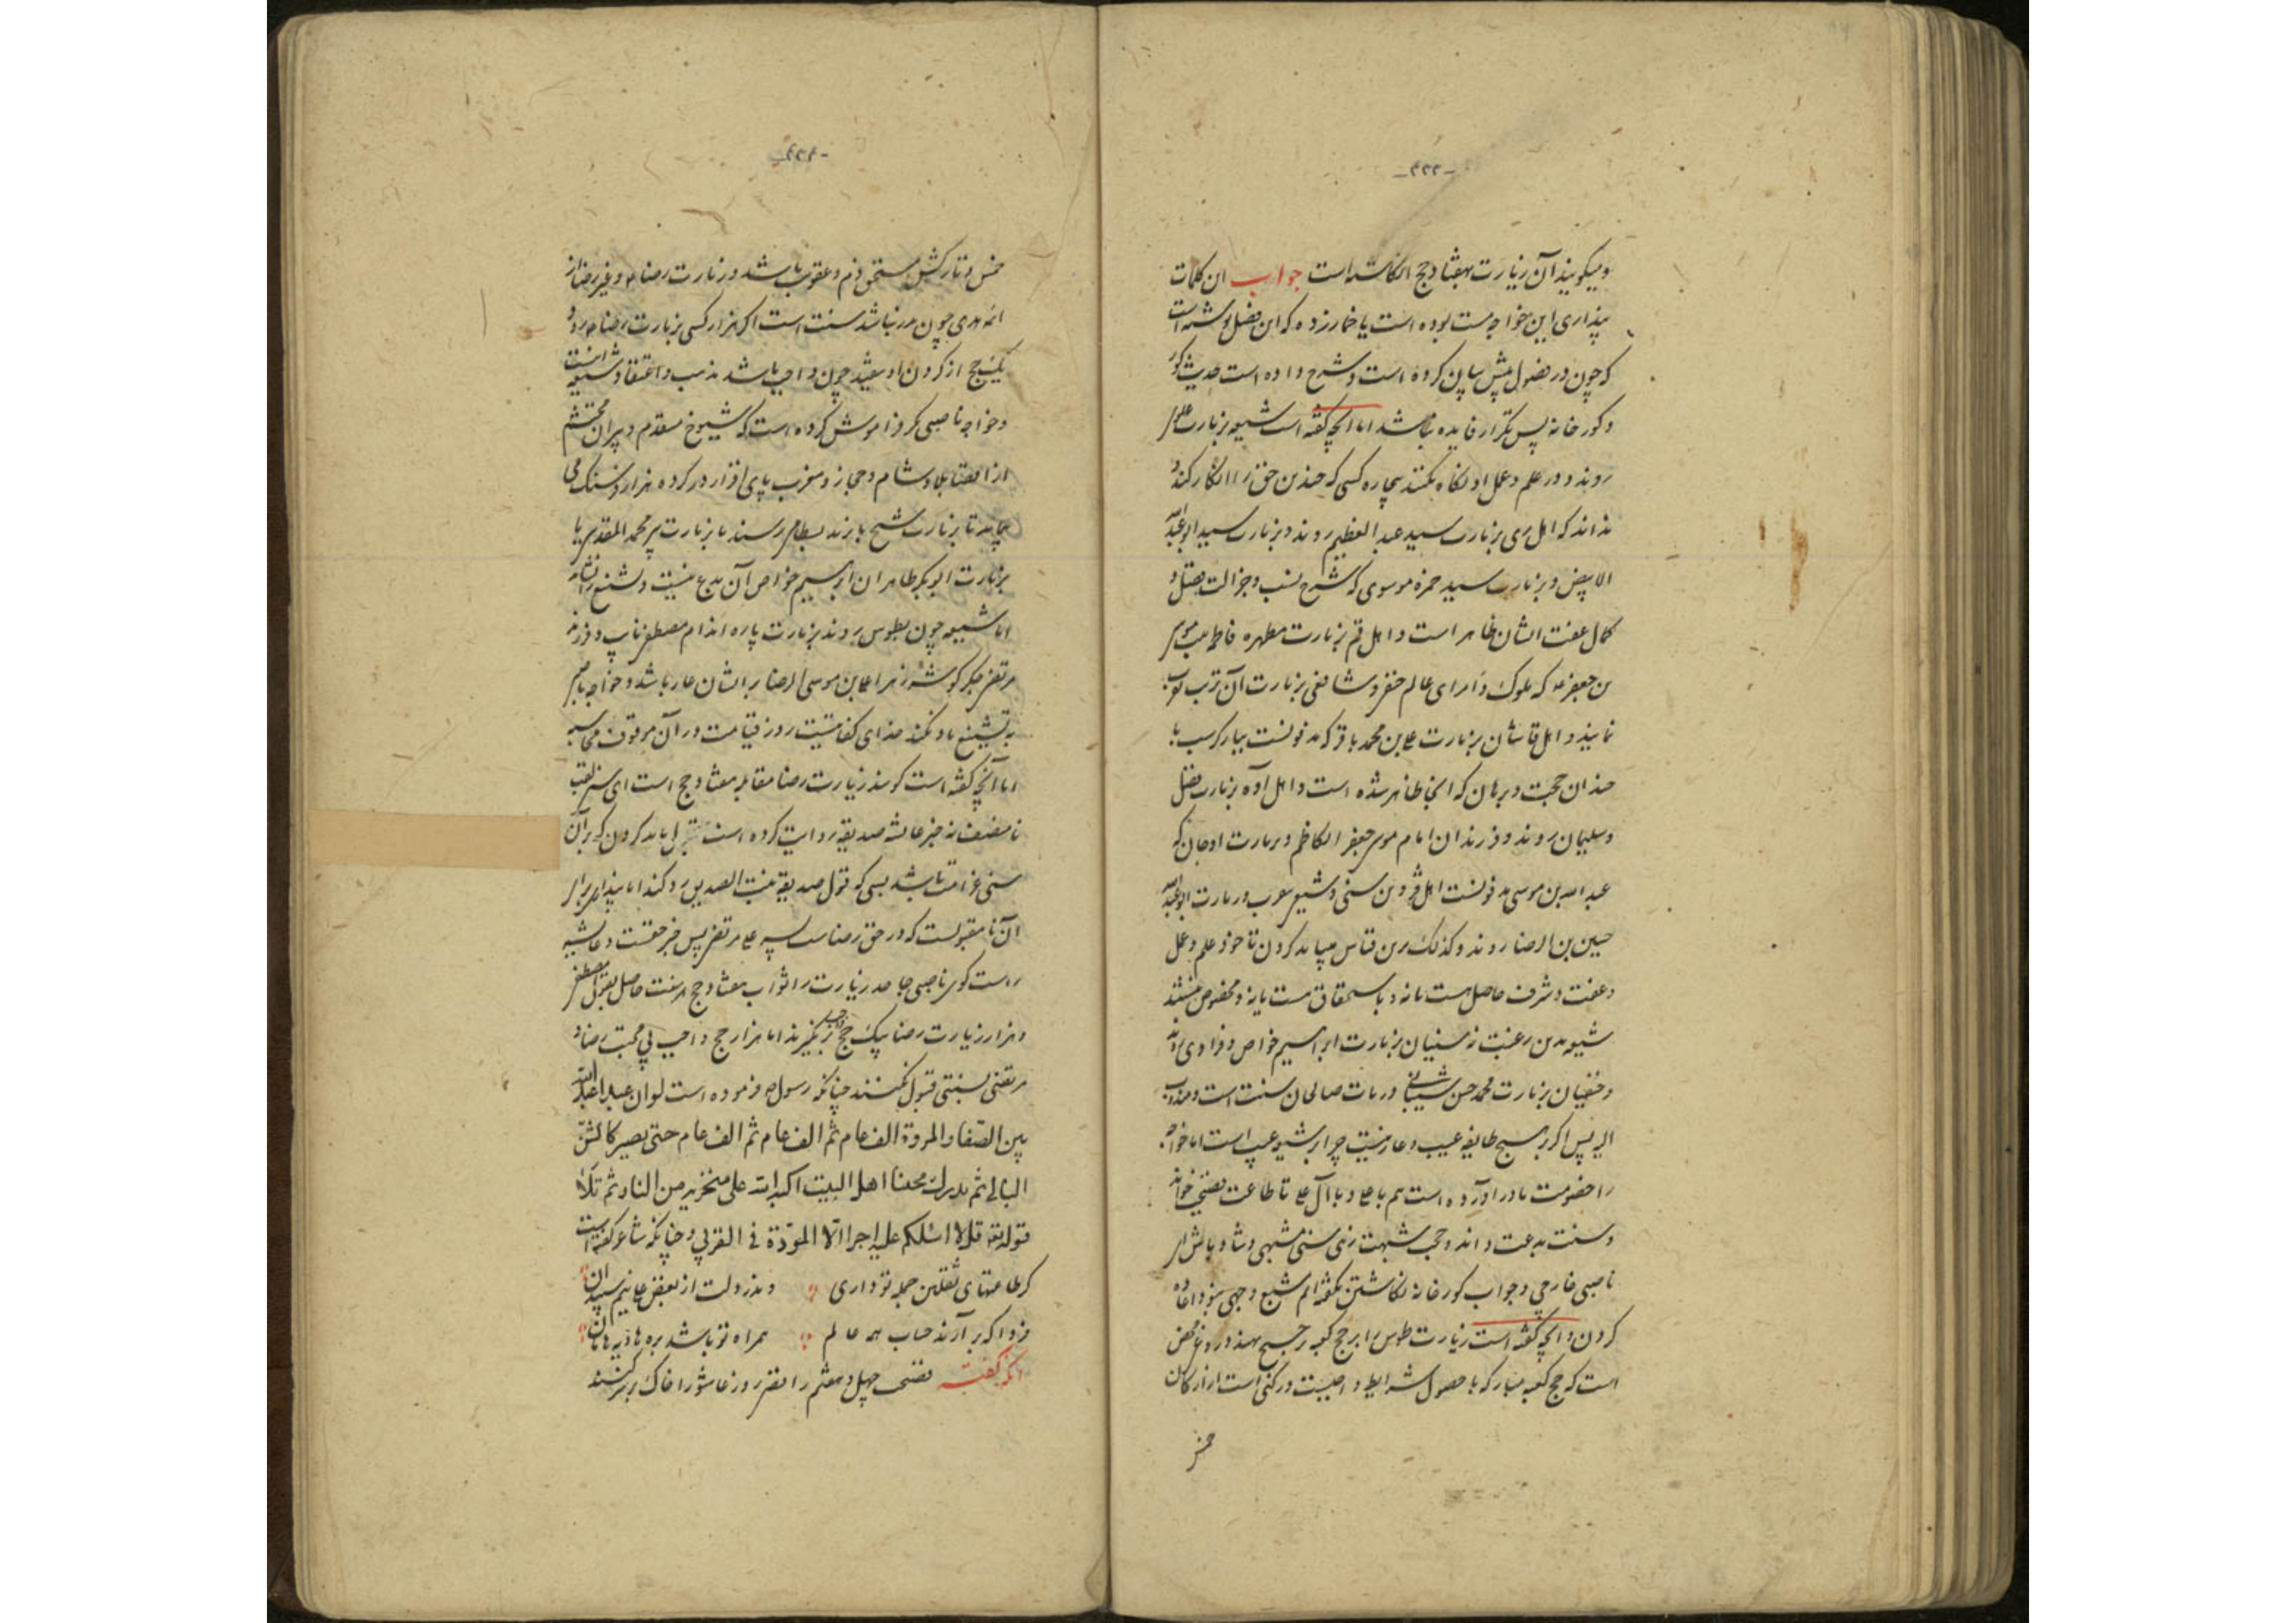 -۴۲۲-
و میکویند آن زیارت بهفتاد حج انکاشته است جواب این کلمات
پنداری این خواجه مست بوده است یا خمارزده که این فصل نوشته است
که چون در فصول پیش بیان کرده است و شرح داده است حدیث کور
و کورخانه پس تکرار فایده نباشد اما آنچه گفته است شیعه بزیارت علوی
روند و در علم و عمل او نکاه نکنند بیچاره کسی که چندین حق را انکار کند و
نداند که اهل ری بزیارت سید عبد العظیم روند و بزیارت سید ابو عبد الله
الابیض و بزیارت سید حمزه موسوی که شرح نسب و جزالت فضل و
کمال عفت ایشان ظاهر است و اهل قم بزیارت مطهره فاطمه بنت موسی
بن جعفر که ملوک و امرای عالم حنفی و شافعی بزیارت آن تربت تقرب
نمایند و اهل قاشان بزیارت علی بن محمد باقر که مدفونست ببارکرسب با
چندان حجت و برهان که آنجا ظاهر شده است و اهل آوه بزیارت فضل
و سلیمان روند فرزندان امام موسی جعفر الکاظم و بزیارت اوجان که
عبد الله بن موسی مدفونست اهل قزوین سنی و شیعی بزیارت ابو عبد الله
حسین بن الرضا روند و کذلک برین قیاس میباید کردن تا خود علم و عمل
و عفت و شرف حاصل هست یا نه و باستحقاق هست یا نه و مخصوص نیستند
شیعه بدین رغبت که سنیان بزیارت ابراهیم خواص روند
و حنفیان بزیارت محمد حسن شیبانی و زیارت صالحان سنت است و مندوب
الیه پس اکر بر هیچ طایفه عیب و عار نیست چرا بر شیعه عیب است اما خواجه
را خصومت مادرآورده است هم با علی و با آل علی تا طاعت معصیتی خواند
و سنت بدعت داند و حجت شبهت زهی سنی مشبهی
ناصبی خارجی و جواب کورخانه نکاشتن بگفته ایم شبع وجهی نبود اعاده
کردن و آنچه گفته است زیارت طوس را بر حج کعبه ترجیح نهند دروغ محض
است که حج کعبه مبارکه با حصول شرایط واجبست و رکنی است از ارکان
خمس
-۴۲۳-
خمس و تارکش مستحق ذم و عقوبت باشد و زیارت رضا و غیر رضا از
ائمه هدی چون نذر نباشد سنت است اکر هزار کسی بزیارت رضا رود
یک حج از کردن او نیفتد چون واجب باشد مذهب و اعتقاد شیعه اینست
و خواجه ناصبی مکر فراموش کرده است که شیوخ متقدم و پیران محتشم
از اقصای بلاد شام و حجاز و مغرب پای افزار در کرده هزار فرسنک می
آیند تا بزیارت شیخ بایزید بسطامی رسند یا بزیارت پیر محمد المقدسی یا
بزیارت ابوبکر طاهران ابراهیم خواص آن بدع نیست و تشنیع را نشاید
اما شیعه چون بطوس روند بزیارت پاره اندام مصطفی نایب و فرزند
مرتضی جکرکوشه زهرا علی بن موسی الرضا بر ایشان عار باشد و خواجه ناصبی
بر تشنیع یاد کند خدای کفایتست روز قیامت در آن موقوف محاسبه
اما آنچه گفته است کویند زیارت رضا مقابله هفتاد حج است ای
نامنصف نه خبر عایشه صدیقه روایت کرده است تبرا باید کردن که بر آن
سنی غرامت باشد بسی که قول صدیقه بنت الصدیق رد کند اما پنداری برای
آن نامقبولست که در حق رضاست پسر علی مرتضی پس خبر حقست و عایشه
راست کوی ناصبی جاحد زیارت را ثواب هفتاد حج هست حاصل بقول مصطفی
و هزار زیارت رضا بیک حج بر نکیرند اما هزار حج واجب بی محبت رضا و
مرتضی بسنتی قبول نکنند چنانکه رسول فرموده است لو ان عبدا عبد الله
بین الصفا و المروة الف عام ثم الف عام ثم الف عام حتی یصیر کالشن
البالی ثم یدرک محبتنا اهل البیت اکبه الله علی منخریه من النار ثم تلا
قوله تع قل لا اسئلکم علیه اجرا الا المودة فی القربی و چنانکه شاعر گفته است
کر طاعتهای ثقلین جمله تو داری و اندر دلت از بغض علی نیم سپندان
فردا که بر آرند حساب همه عالم همراه تو باشد بره هاویه هامان
آنکه گفته فضیحت چهل و هفتم رافضی روز عاشورا خاک بر سر کنند